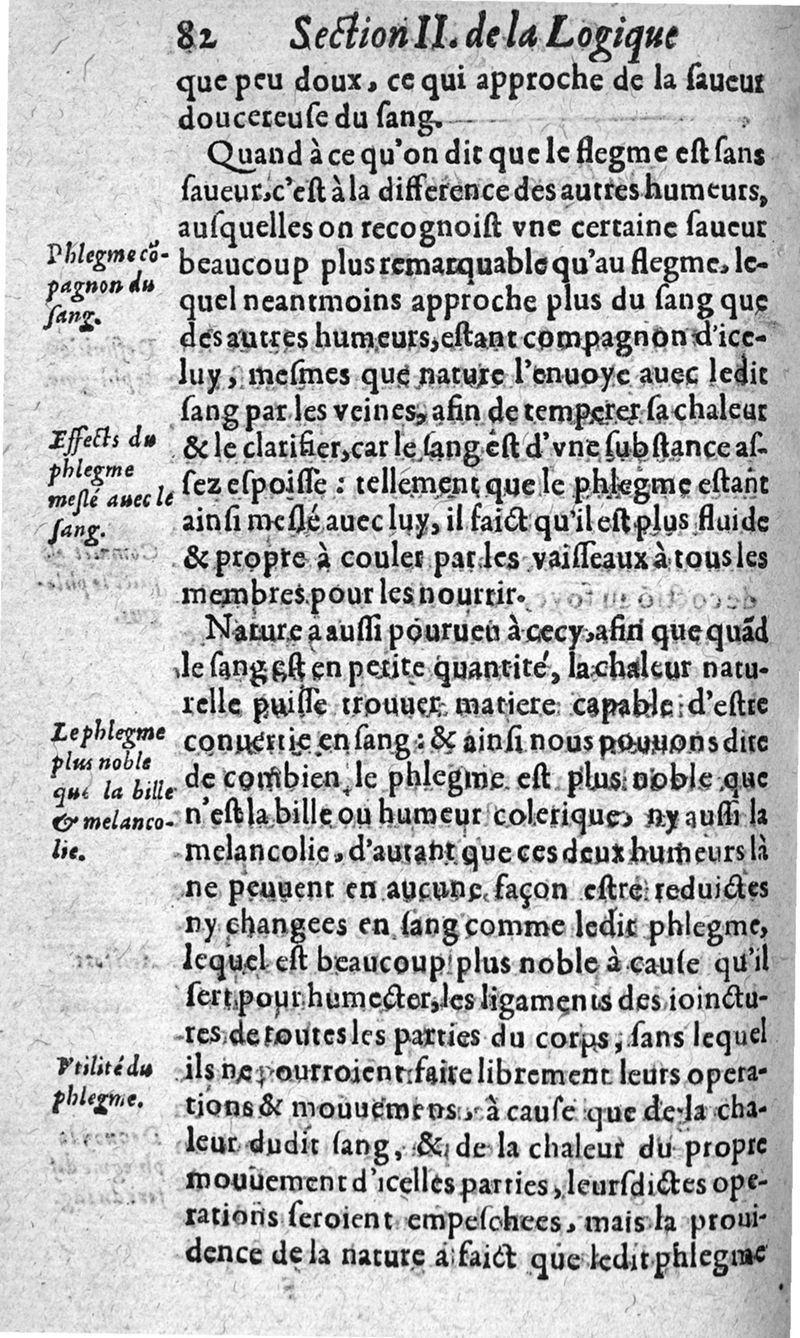 82 Section II. de la Logique
que peu doux, ce qui approche de la ſaueur
doucereuſe du ſang.
Quand à ce qu'on dit que le flegme eſt ſans
ſaueur, c'eſt à la difference des autres humeurs,
auſquelles on recognoiſt vne certaine ſaueur
Phlegme cō-
pagnon du
ſang.
beaucoup plus remarquable qu'au flegme, le-
quel neantmoins approche plus du ſang que
des autres humeurs, eſtant compagnon d'ice-
luy, meſmes que nature l'enuoye auec ledit
ſang par les veines, afin de temperer ſa chaleur
Effects du
phlegme
meſlé auec le
ſang.
& le clarifier, car le ſang eſt d'vne ſubſtance aſ-
ſez eſpoiſſe : tellement que le phlegme eſtant
ainſi meſlé auec luy, il faict qu'il eſt plus fluide
& propre à couler par les vaiſſeaux à tous les
membres pour les nourrir.
Nature a auſſi pourueu à cecy, afin que quād
le ſang eſt en petite quantité, la chaleur natu-
relle puiſſe trouuer matiere capable d'eſtre
Le phlegme
plus noble
que la bille
& melanco-
lie.
conuertie en ſang : & ainſi nous pouuons dire
de combien le phlegme eſt plus noble que
n'eſt la bille ou humeur colerique, ny auſſi la
melancolie, d'autant que ces deux humeurs là
ne peuuent en aucune façon eſtre reduictes
ny changees en ſang comme ledit phlegme,
lequel eſt beaucoup plus noble à cauſe qu'il
ſert pour humecter, les ligaments des ioinctu-
res de toutes les parties du corps, ſans lequel
Vtilité du
phlegme.
ils ne pourroient faire librement leurs opera-
tions & mouuemens, à cauſe que de la cha-
leur dudit ſang, & de la chaleur du propre
mouuement d'icelles parties, leurſdictes ope-
rations ſeroient empeſchees, mais la proui-
dence de la nature a faict que ledit phlegme